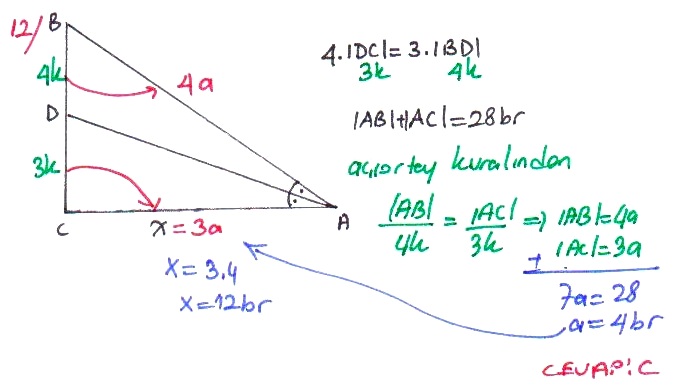 12/
B
4k
4a
D
3k
C
x = 3a
A
x = 3.4
x = 12br
4.|DC| = 3.|BD|
3k 4k
|AB|+|AC| = 28br
açıortay kuralından
|AB|/4k = |AC|/3k => |AB| = 4a
|AC| = 3a
+
7a = 28
a = 4br
CEVAP: C